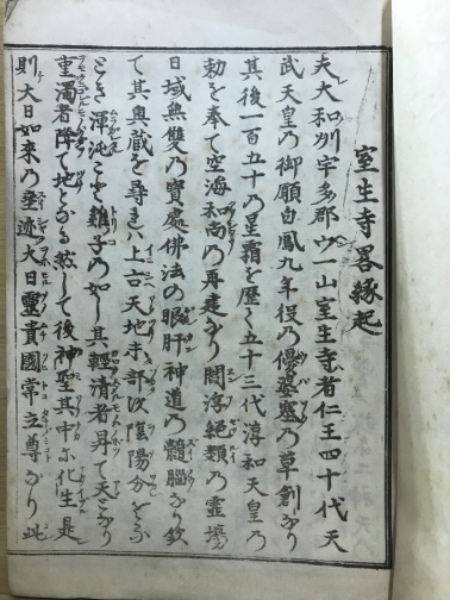 室生寺畧縁起
夫大和州宇多郡宀一山室生寺者仁王四十代天
武天皇乃御願白鳳九年役乃優婆塞乃草創なり
其後一百五十乃星霜を歴く五十三代淳和天皇乃
勅を奉て空海和尚乃再建なり閻浮絶類乃霊場
日域無雙乃寳處佛法の眼肝神道乃髓腦なり欽
て其奥蔵を尋れハ上古天地未部以陰陽分をふ
とき渾沌こと雞子乃如し其輕清者昇て天となり
重濁者降て地となる然して後神聖其中に化生是
則大日如来乃垂迹大日孁貴國常立尊なり此